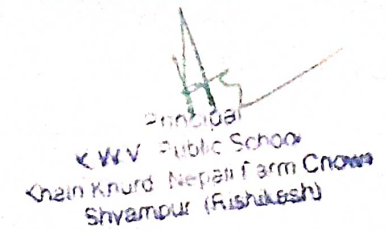 Principal
KWV Public School
Khairi Khurd Nepali Farm Chowk
Shyampur (Rishikesh)